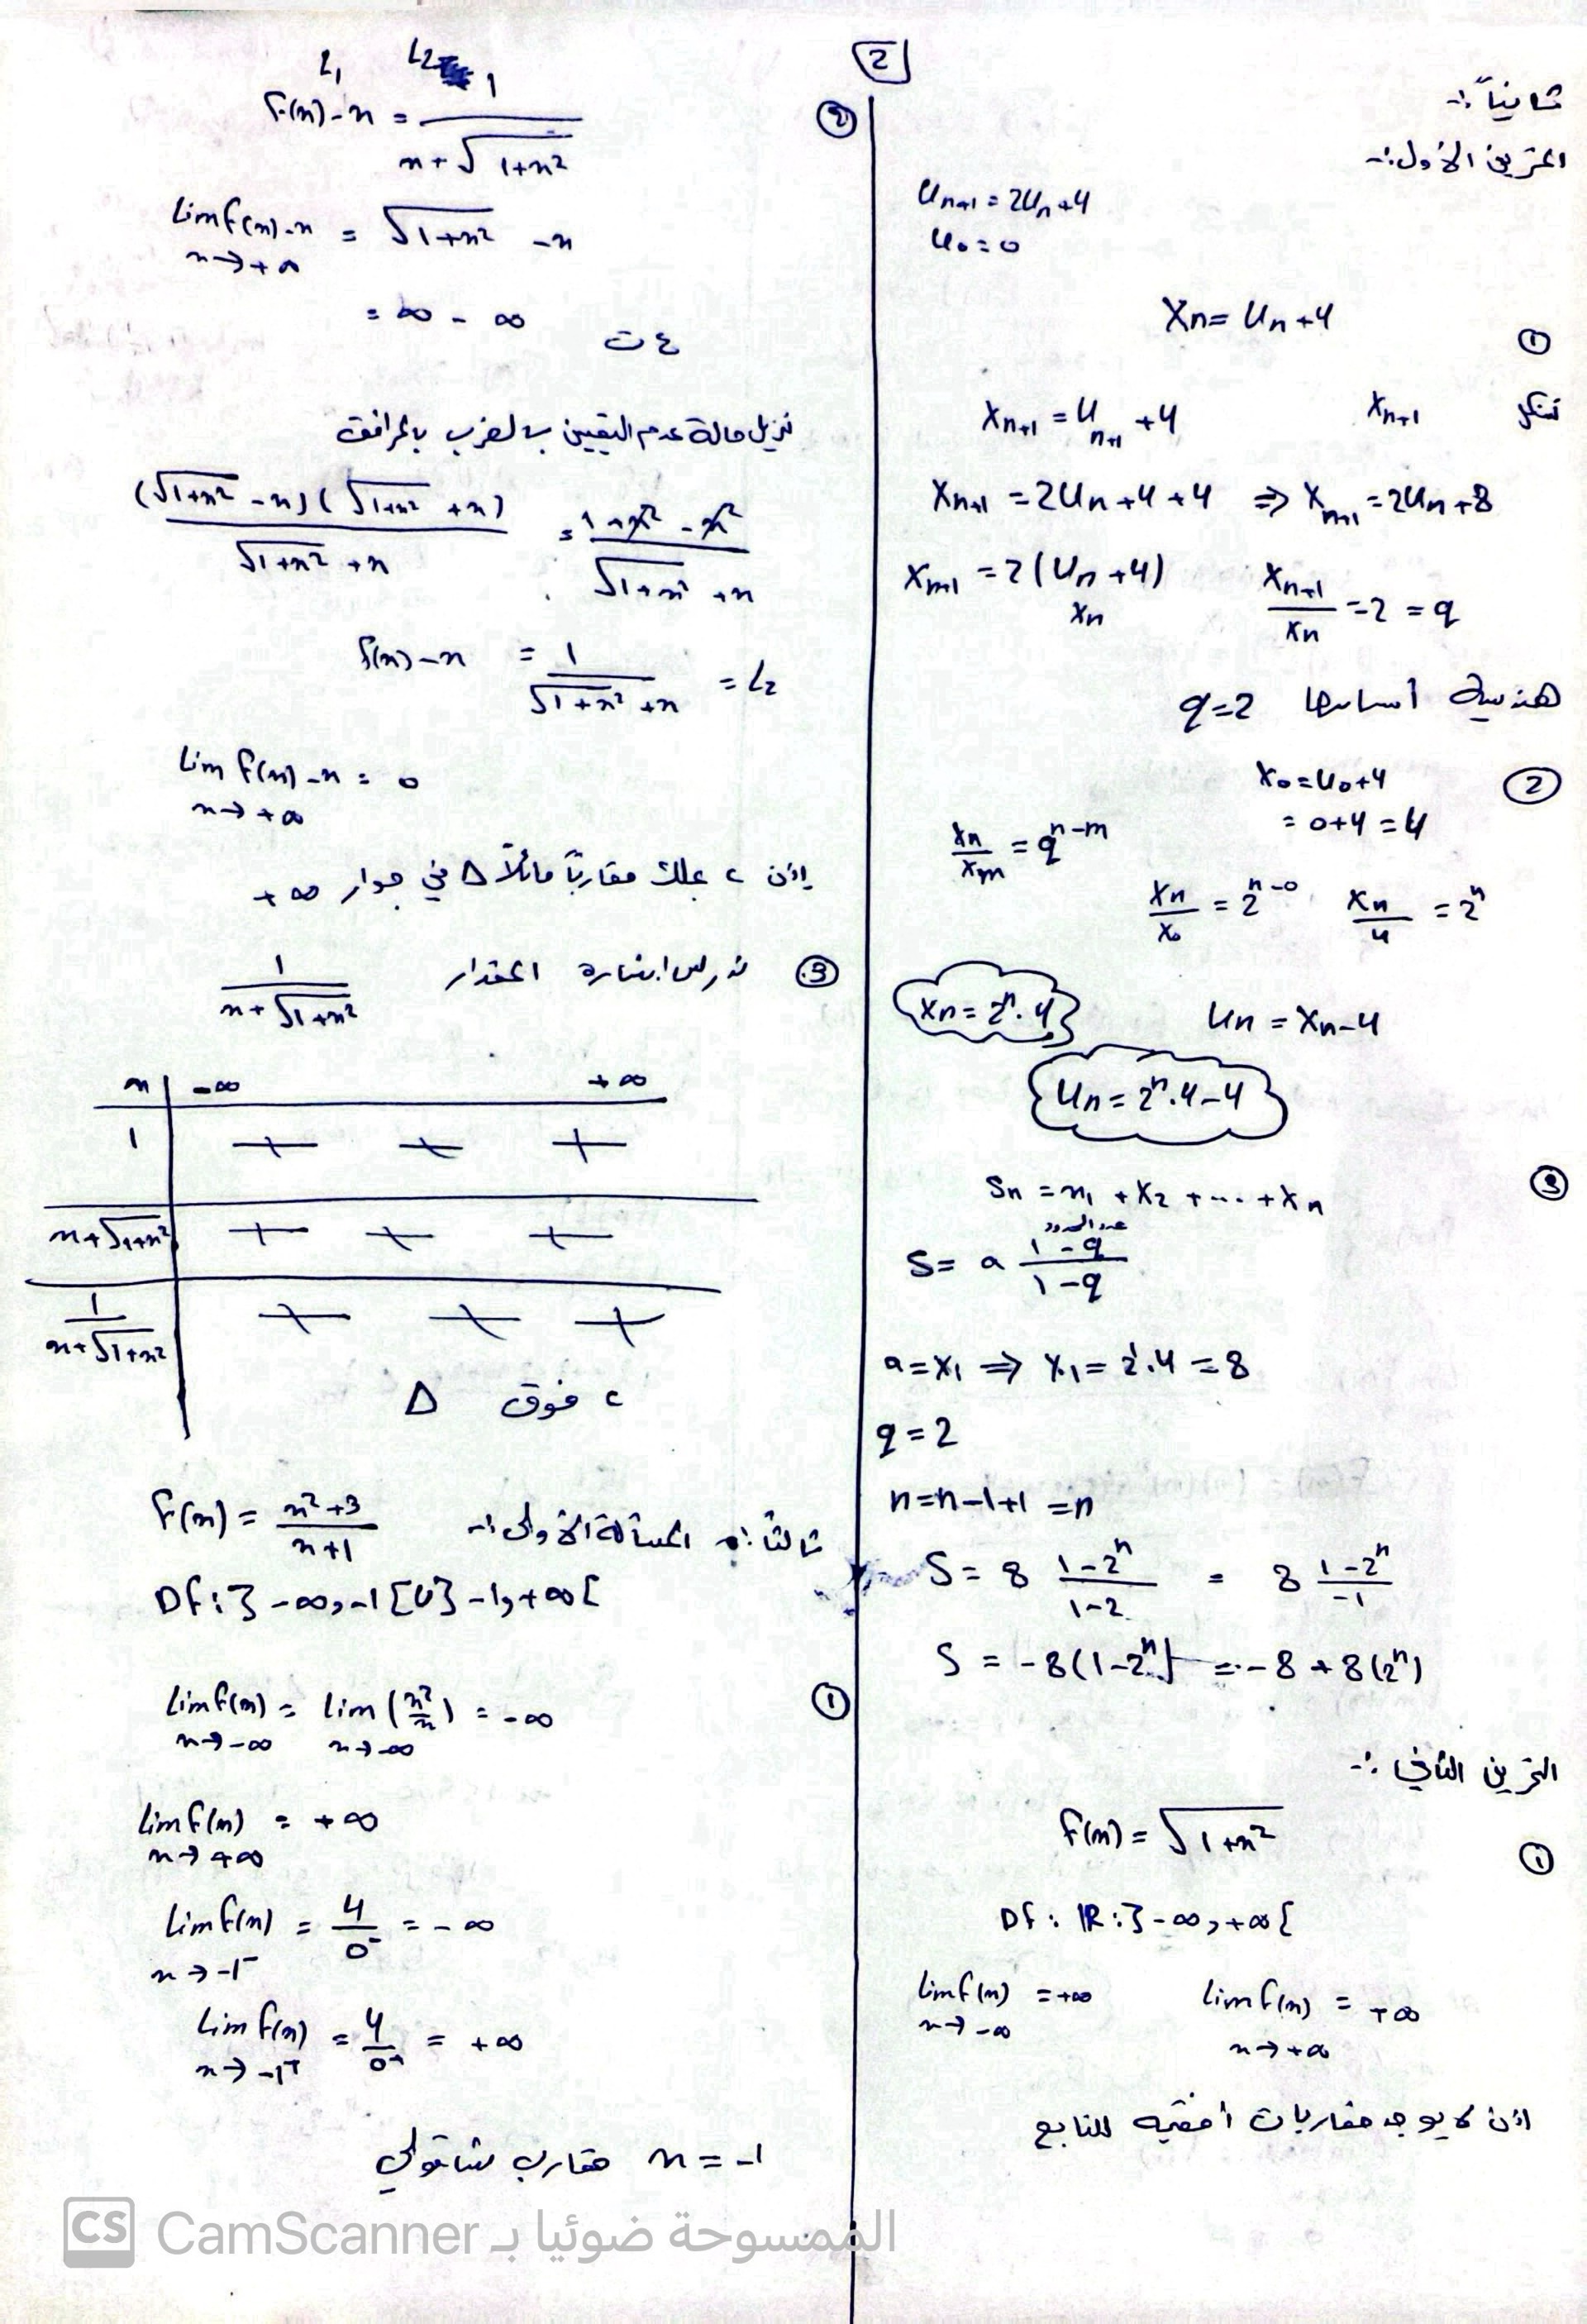 2
ثانياً :-
التمرين الأول :-
U_{n+1} = 2U_n + 4
U_0 = 0
X_n = U_n + 4
①
نشكل X_{n+1} X_{n+1} = U_{n+1} + 4
X_{n+1} = 2U_n + 4 + 4 ⇒ X_{n+1} = 2U_n + 8
X_{n+1} = 2(U_n + 4) X_{n+1}/X_n = 2 = q
X_n
هندسية أساسها q = 2
② X_0 = U_0 + 4
= 0 + 4 = 4
X_n/X_m = q^{n-m}
X_n/X_0 = 2^{n-0} X_n/4 = 2^n
X_n = 2^n . 4 U_n = X_n - 4
U_n = 2^n . 4 - 4
③ S_n = x_1 + X_2 + ... + X_n
عدد الحدود
S = a (1 - q)/(1 - q)
a = X_1 ⇒ X_1 = 2^1 . 4 = 8
q = 2
n = n - 1 + 1 = n
S = 8 (1 - 2^n)/(1 - 2) = 8 (1 - 2^n)/(-1)
S = -8(1 - 2^n) = -8 + 8(2^n)
التمرين الثاني :-
f(x) = √(1 + x²)
①
Df : IR : ]-∞, +∞[
lim f(x) = +∞ lim f(x) = +∞
x → -∞ x → +∞
اذن لا يوجد مقاربات أفقية للتابع
L_1 L_2
② f(x) - x = 1/(x + √(1 + x²))
lim f(x) - x = √(1 + x²) - x
x → +∞
= ∞ - ∞
ع ت
نزيل حالة عدم التعيين بالضرب بالمرافق
(√(1+x²) - x)(√(1+x²) + x)/(√(1+x²) + x) = (1 + x² - x²)/(√(1+x²) + x)
f(x) - x = 1/(√(1+x²) + x) = L_2
lim f(x) - x = 0
x → +∞
إذن c يملك مقارباً مائلاً Δ في جوار +∞
③ ندرس اشارة المقدار 1/(x + √(1+x²))
x -∞ +∞
1 + + +
x + √(1+x²) + + +
1/(x + √(1+x²)) + + +
c فوق Δ
ثالثاً :- المسألة الأولى :- f(x) = (x² + 3)/(x + 1)
Df : ]-∞, -1[ U ]-1, +∞[
① lim f(x) = lim (x²/x) = -∞
x → -∞ x → -∞
lim f(x) = +∞
x → +∞
lim f(x) = 4/0⁻ = -∞
x → -1⁻
lim f(x) = 4/0⁺ = +∞
x → -1⁺
x = -1 مقارب شاقولي
CS CamScanner الممسوحة ضوئيا بـ